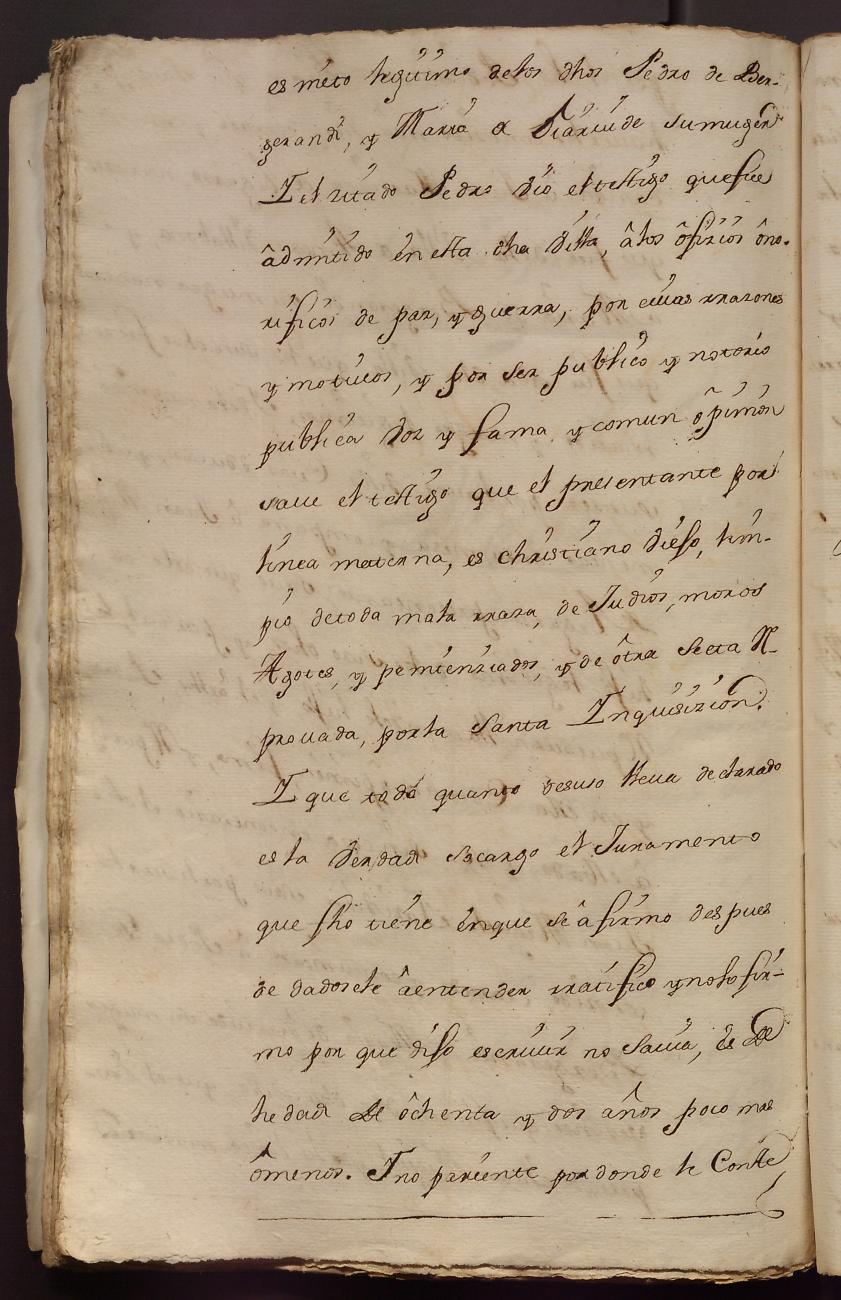 es nieto legitimo delos dhos Pedro de Ber-
gerandi, y Maria de su muger
I el zitado Pedro vio el testigo que fue
âdmitido en esta dha villa, âlos ôfizios ôno-
rificos de paz, y guerra, por cuias rrazones
y motivos, y por ser publico y notorio
publica voz y fama y comun opinion
save el testigo que el presentante por
linea materna, es christiano viejo, lim-
pio detoda mala rraza, de Judios, moros
Agotes, y penitenziados, y de ôtra secta Re-
provada, porla Santa Inquisizion.
I que todo quanto desuso lleva declarado
es la verdad socargo el Juramento
que fho tiene enque se âfirmo despues
de dadosele âentender rratifico y nolo fir-
mo por que dijo escrivir no savia, es de
hedad de ôchenta y dos años poco mas
ômenos. I no pariente por donde le Conste